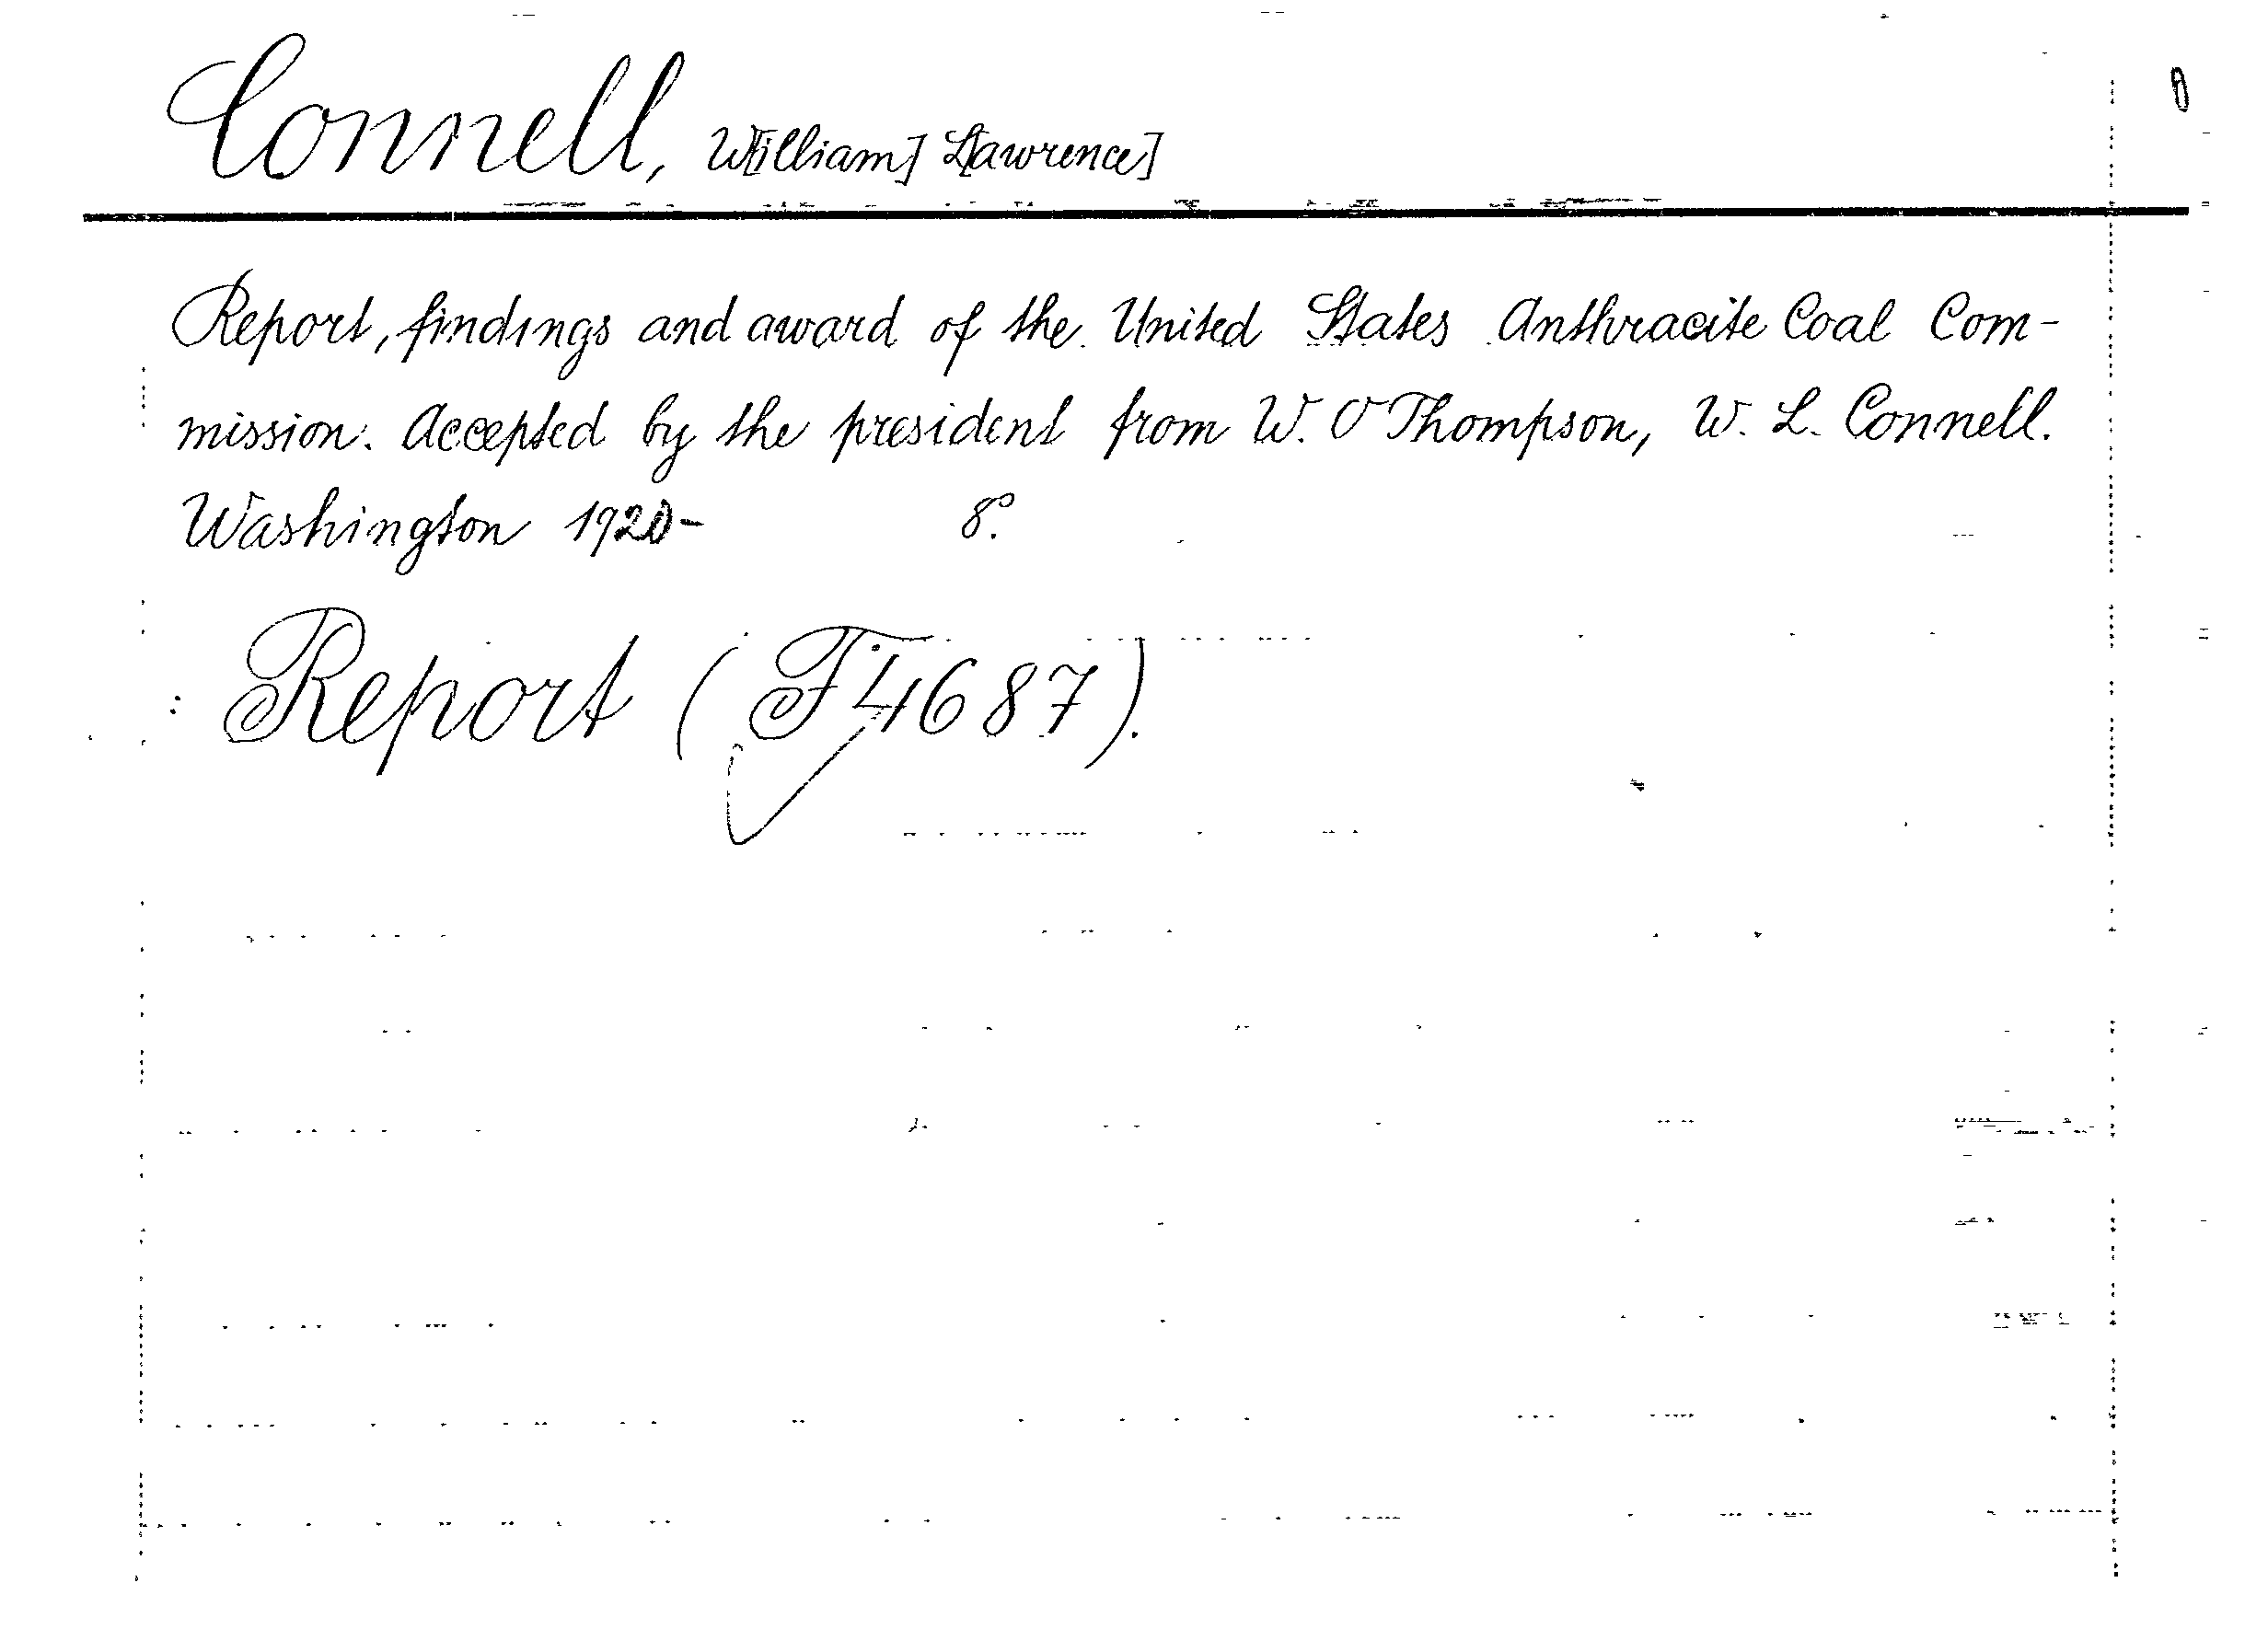 Connell, W[illiam] L[awrence]
Report, findings and award of the United States Anthracite Coal Com-
mission. Accepted by the president from W. O Thompson, W. L. Connell.
Washington 1920- 8°.
Report (F4687).